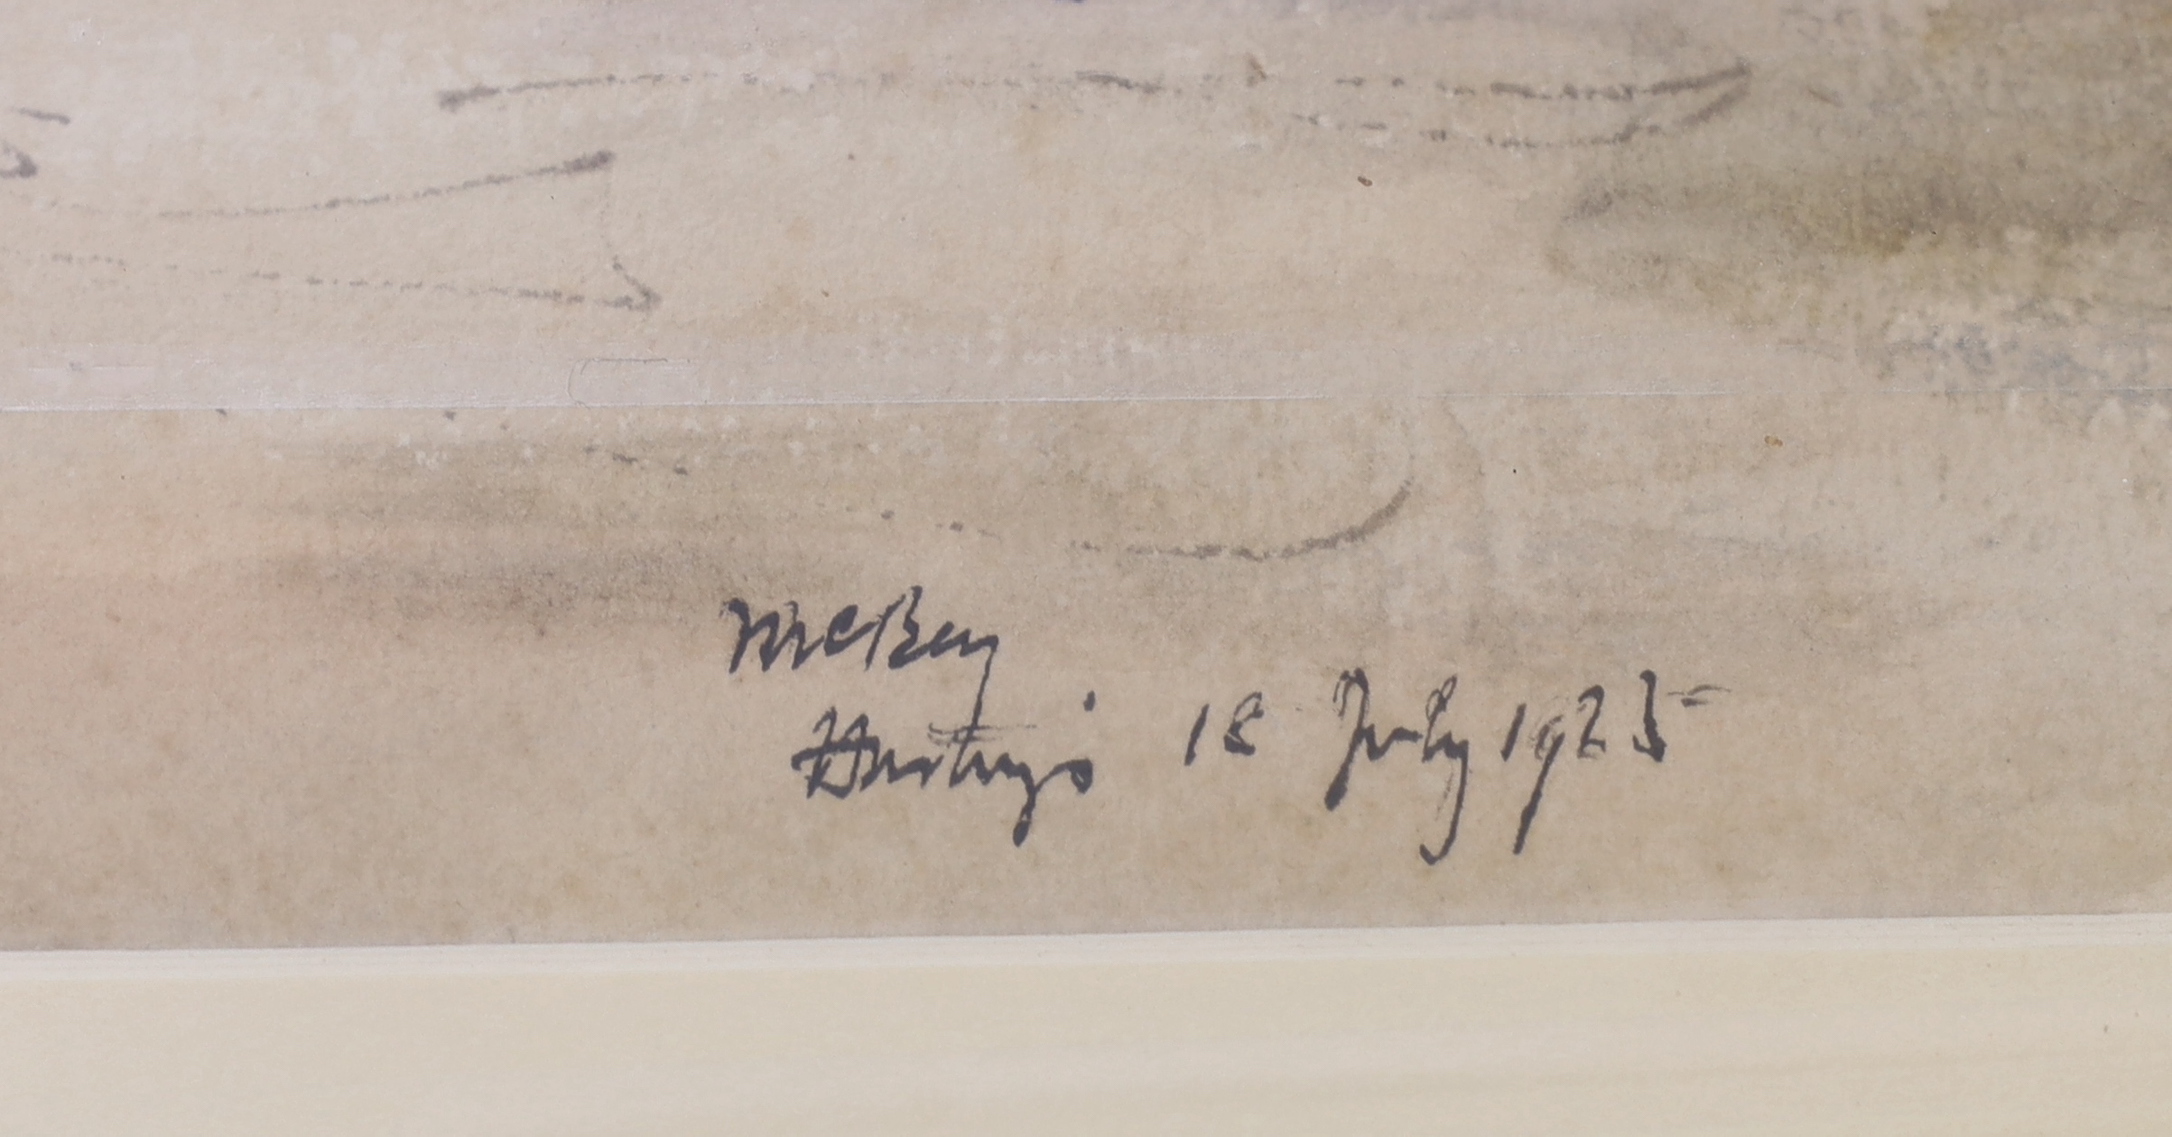 McBey
Hastings 18 July 1925